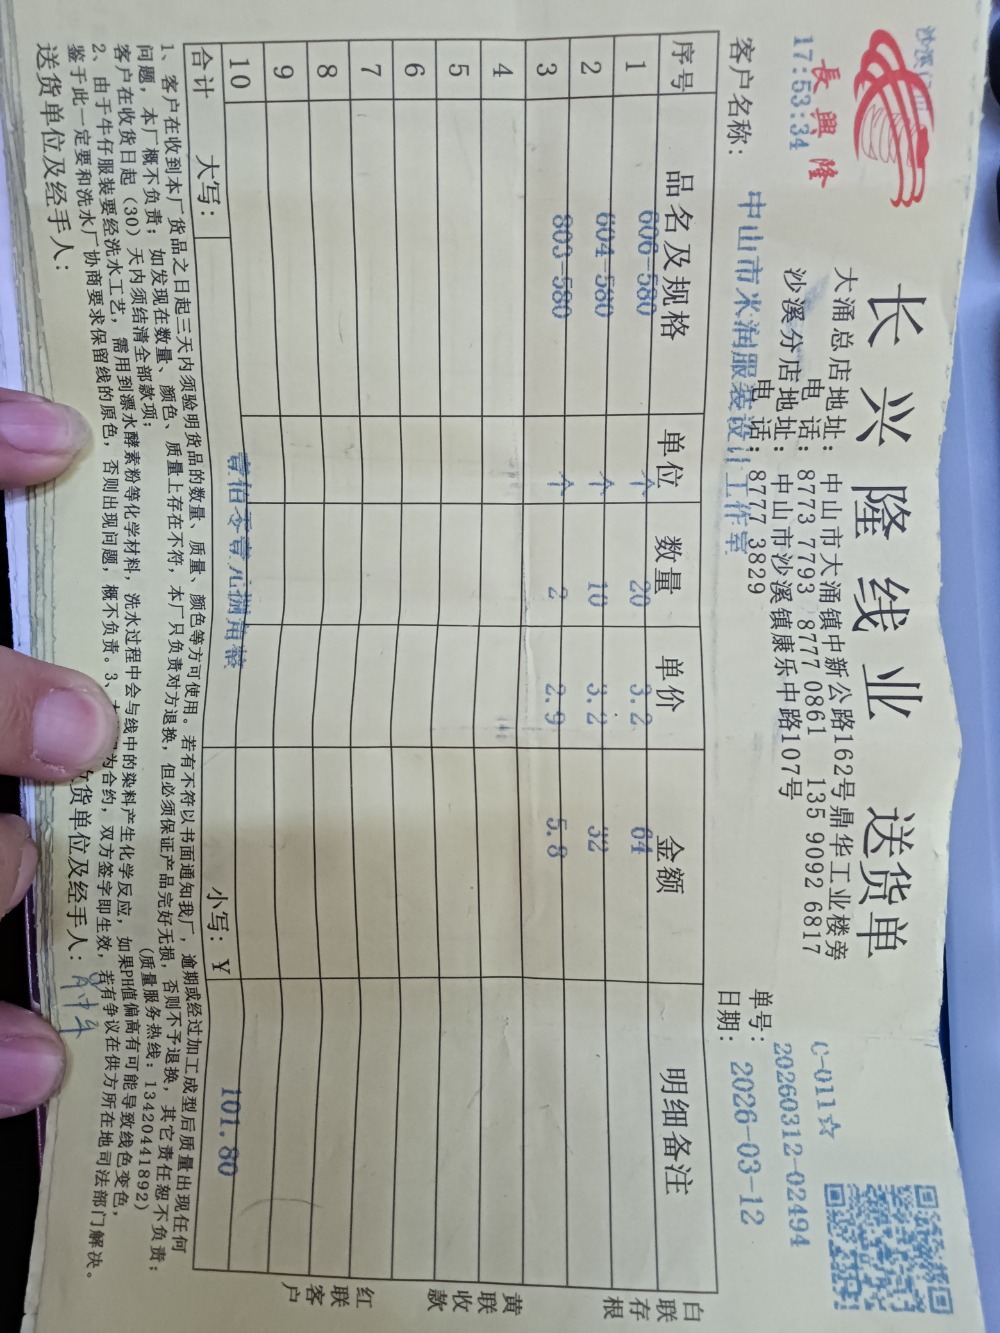 長興隆
17:53:34
长兴隆线业 送货单
大涌总店地址: 中山市大涌镇中新公路162号鼎华工业楼旁
电 话: 8773 7793 8777 0861 135 9092 6817
沙溪分店地址: 中山市沙溪镇康乐中路107号
电 话: 8777 3829
C-011☆
单号: 20260312-02494
客户名称: 中山市水润服装设计工作室
日期: 2026-03-12
序号 品名及规格 单位 数量 单价 金额 明细备注
1 606-580 个 20 3.2 64
2 604-580 个 10 3.2 32
3 803-580 个 2 2.9 5.8
4
5
6
7
8
9
10
合计 大写: 壹佰零壹元捌角整 小写: Y 101.80
1、客户在收到本厂货品之日起三天内须验明货品的数量、质量、颜色等方可使用。若有不符以书面通知我厂,逾期或经过加工成型后质量出现任何
问题,本厂概不负责;如发现在数量、颜色、质量上存在不符,本厂只负责对方退换,但必须保证产品完好无损,否则不予退换,其它责任恕不负责;
客户在收货日起(30)天内须结清全部款项; (质量服务热线:13420441892)
2、由于牛仔服装要经洗水工艺,需用到漂水酵素粉等化学材料,洗水过程中会与线中的染料产生化学反应,如果PH值偏高有可能导致线色变色,
鉴于此一定要和洗水厂协商要求保留线的原色,否则出现问题,概不负责。3、 为合约,双方签字即生效,若有争议在供方所在地司法部门解决。
送货单位及经手人: 收货单位及经手人:
白联存根
黄联收款
红联客户